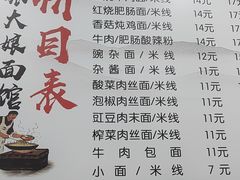 目表
大娘面馆
红烧肥肠面/米线 14元
香菇炖鸡面/米线 14元
牛肉/肥肠酸辣粉 17元
豌杂面/米线 12元
杂酱面/米线 11元
酸菜肉丝面/米线 11元
泡椒肉丝面/米线 11元
豇豆肉末面/米线 11元
榨菜肉丝面/米线 11元
牛肉包面 11元
小面/米线 7元